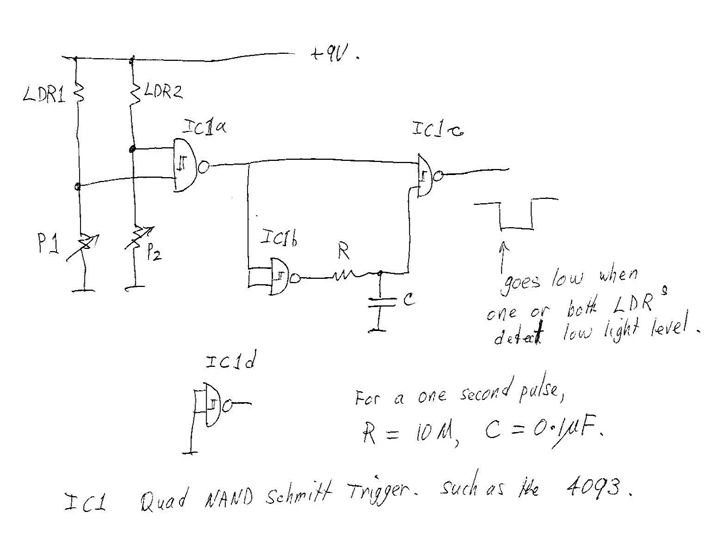 +9V.
LDR1
LDR2
IC1a
IC1c
P1
P2
IC1b
R
C
goes low when
one or both LDRs
detect low light level.
IC1d
For a one second pulse,
R = 10M, C = 0.1µF.
IC1 Quad NAND Schmitt Trigger. Such as the 4093.